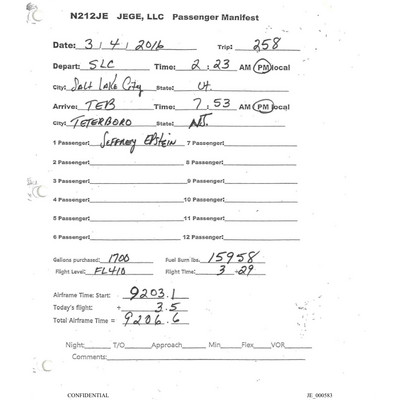 N212JE JEGE, LLC Passenger Manifest
Date: 3/4/2016 Trip: 258
Depart: SLC Time: 2:23 AM PM local
City: Salt Lake City State: Ut.
Arrive: TEB Time: 7:53 AM PM local
City: TETERBORO State: NJ.
1 Passenger: Jeffrey Epstein 7 Passenger:
2 Passenger: 8 Passenger:
3 Passenger: 9 Passenger:
4 Passenger: 10 Passenger:
5 Passenger: 11 Passenger:
6 Passenger: 12 Passenger:
Gallons purchased: 1700 Fuel Burn lbs. 15958
Flight Level: FL410 Flight Time: 3 +29
Airframe Time: Start: 9203.1
Today's flight: + 3.5
Total Airframe Time = 9206.6
Night: T/O Approach Min Flex VOR
Comments:
CONFIDENTIAL JE_000583